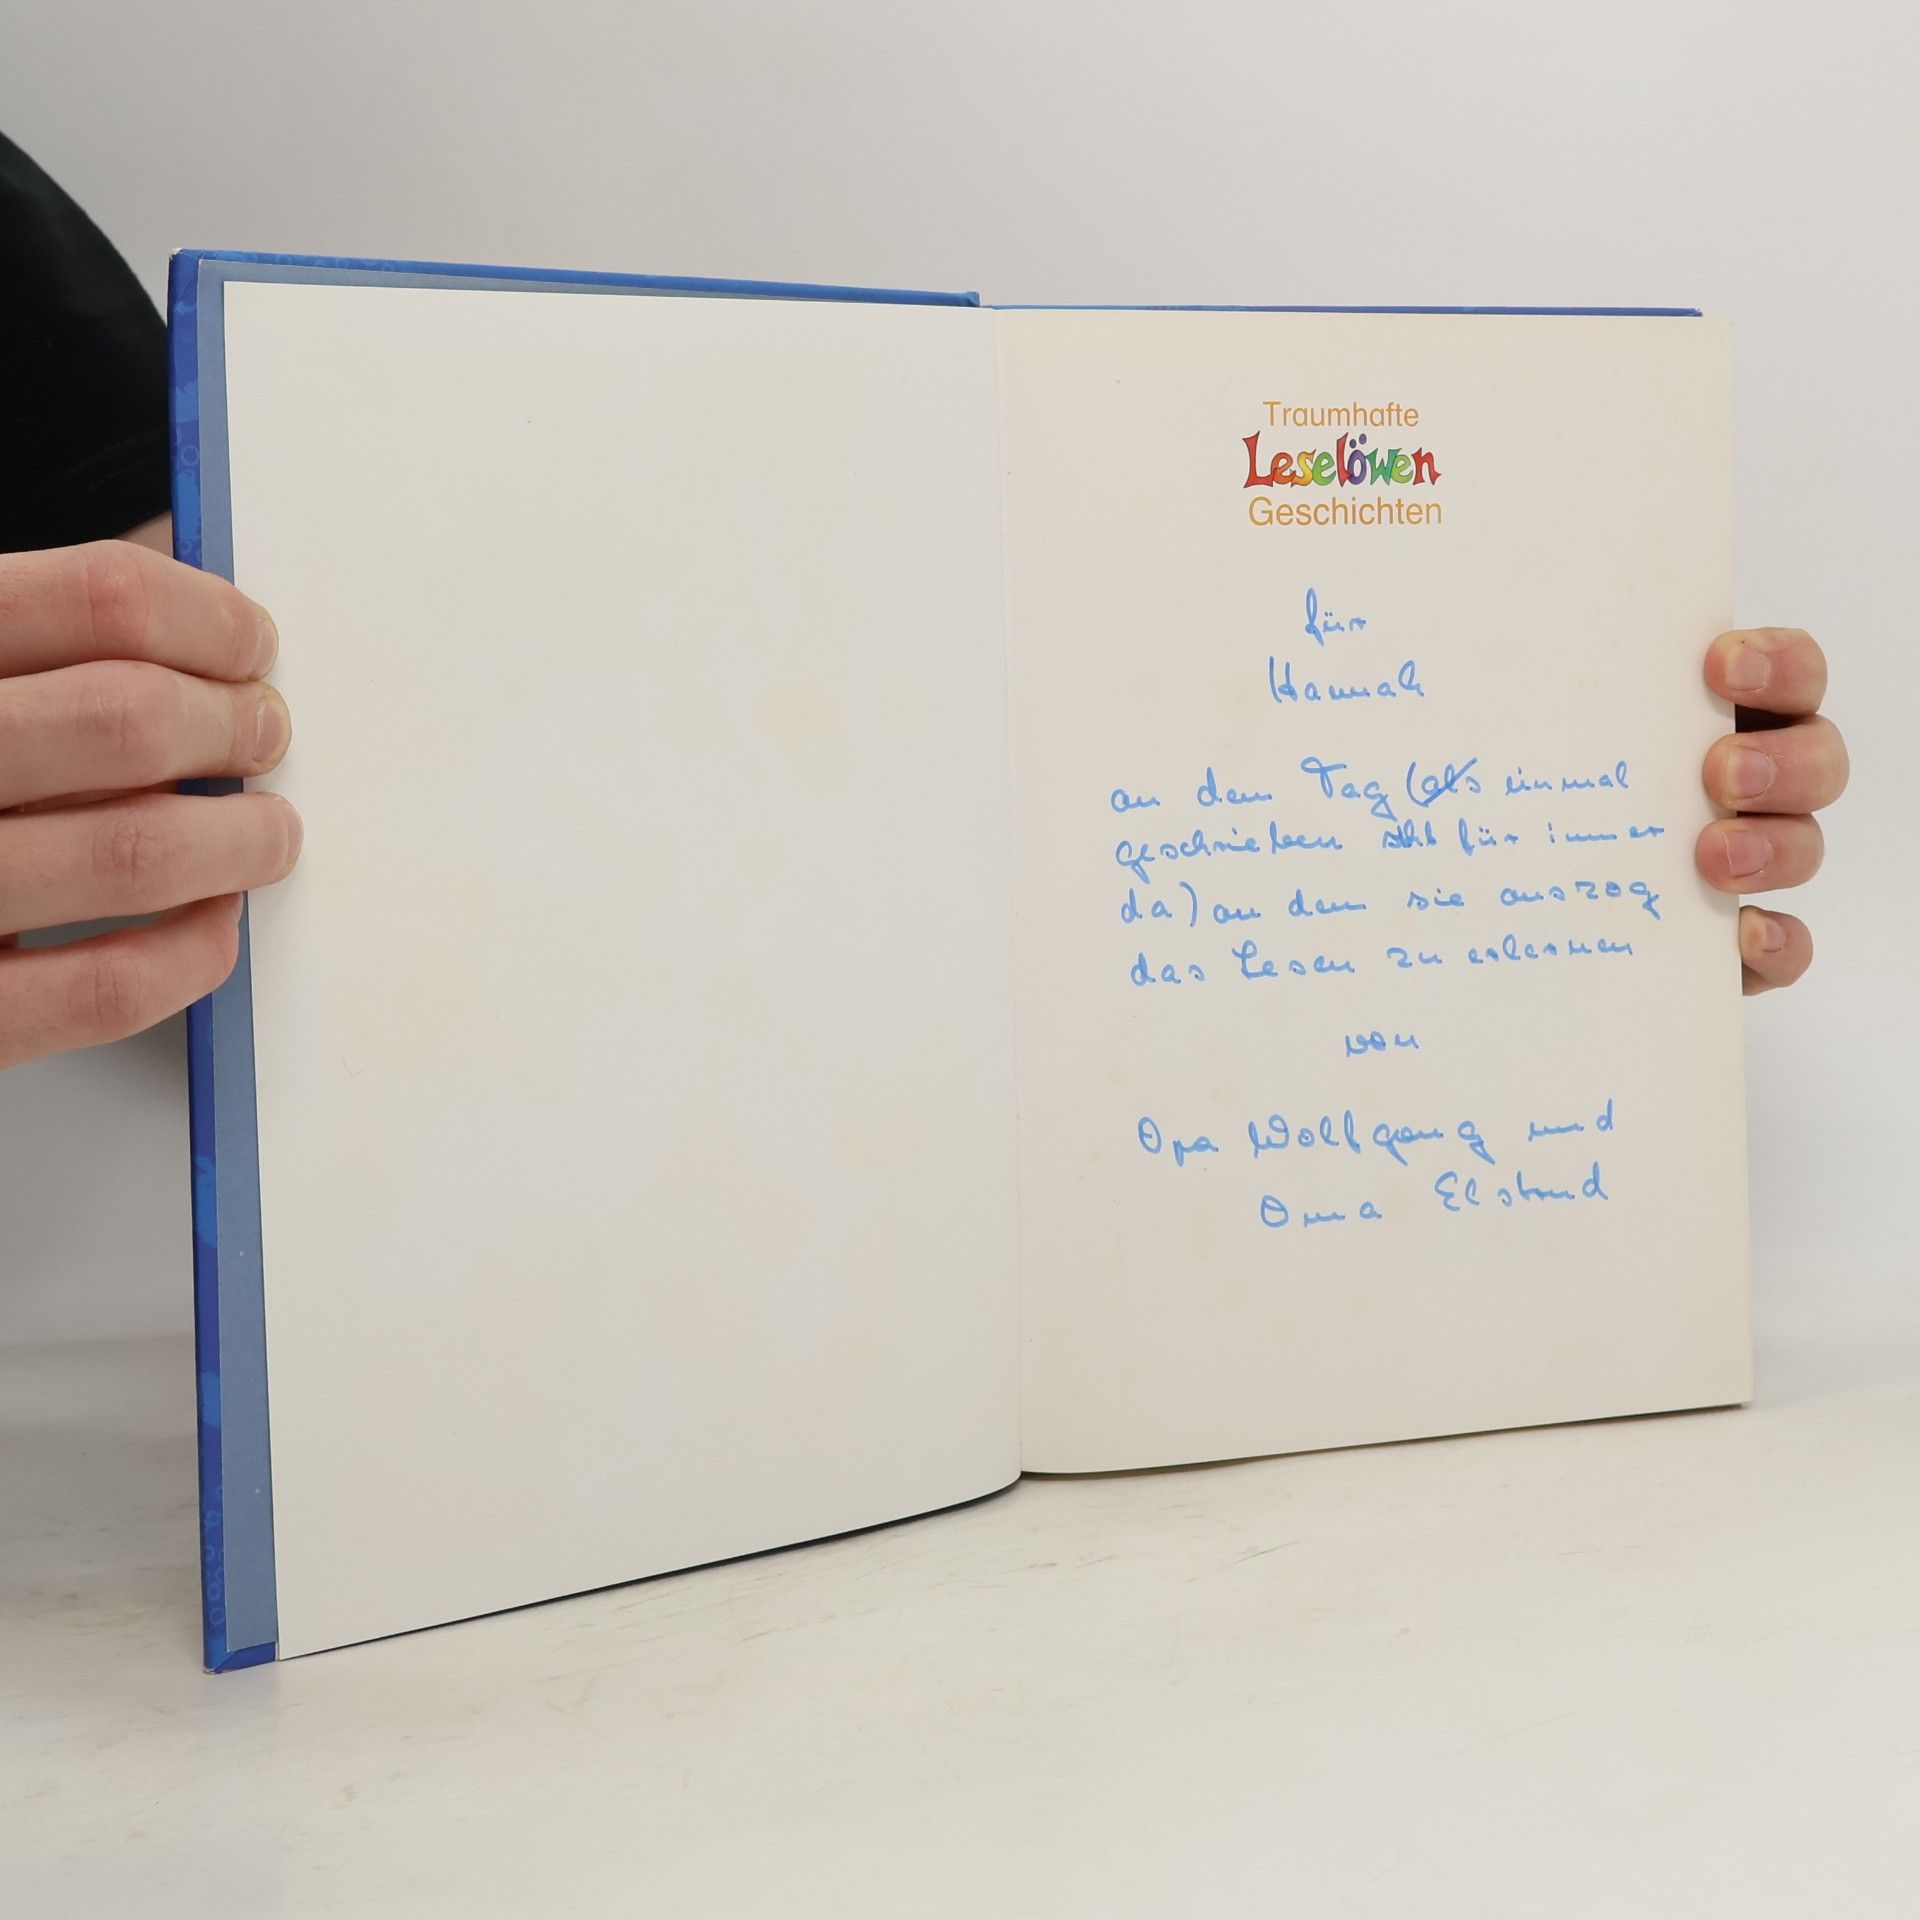 Traumhafte
Leselöwen
Geschichten
für
Hannah
an dem Tag (als einmal
geschrieben steht für immer
da) an dem sie auszog
das Lesen zu erlernen
von
Opa Wolfgang und
Oma